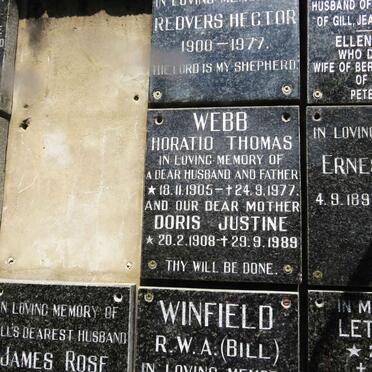 IN LOVING MEMORY OF
REDVERS HECTOR
1900-1977.
THE LORD IS MY SHEPHERD.
HUSBAND OF
OF GILL, JEA
ELLEN
WHO D
WIFE OF BER
OF
PETE
WEBB
HORATIO THOMAS
IN LOVING MEMORY OF
A DEAR HUSBAND AND FATHER
★18.11.1905-†24.9.1977.
AND OUR DEAR MOTHER
DORIS JUSTINE
★20.2.1908-†29.9.1989
THY WILL BE DONE.
IN LOVING
ERNES
4.9.189
IN LOVING MEMORY OF
LL'S DEAREST HUSBAND
JAMES ROSE
WINFIELD
R.W.A.(BILL)
IN LOVING MEMOR
IN M
LET